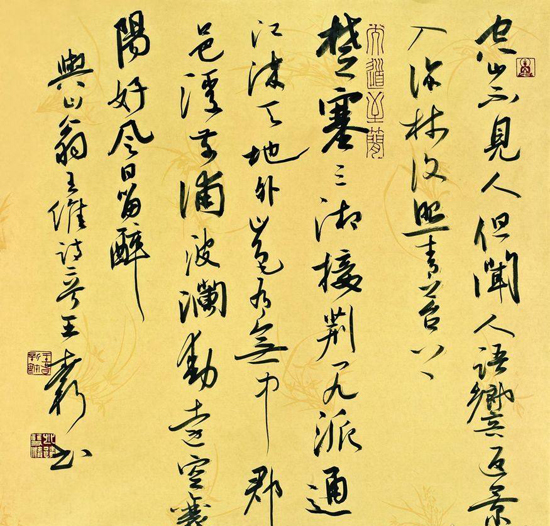 空山不見人但聞人語響返景
入深林復照青苔上
大道至簡
楚塞三湘接荆門九派通
江流天地外山色有無中郡
邑浮前浦波瀾動遠空襄
陽好風日留醉
與山翁王維詩二首王書